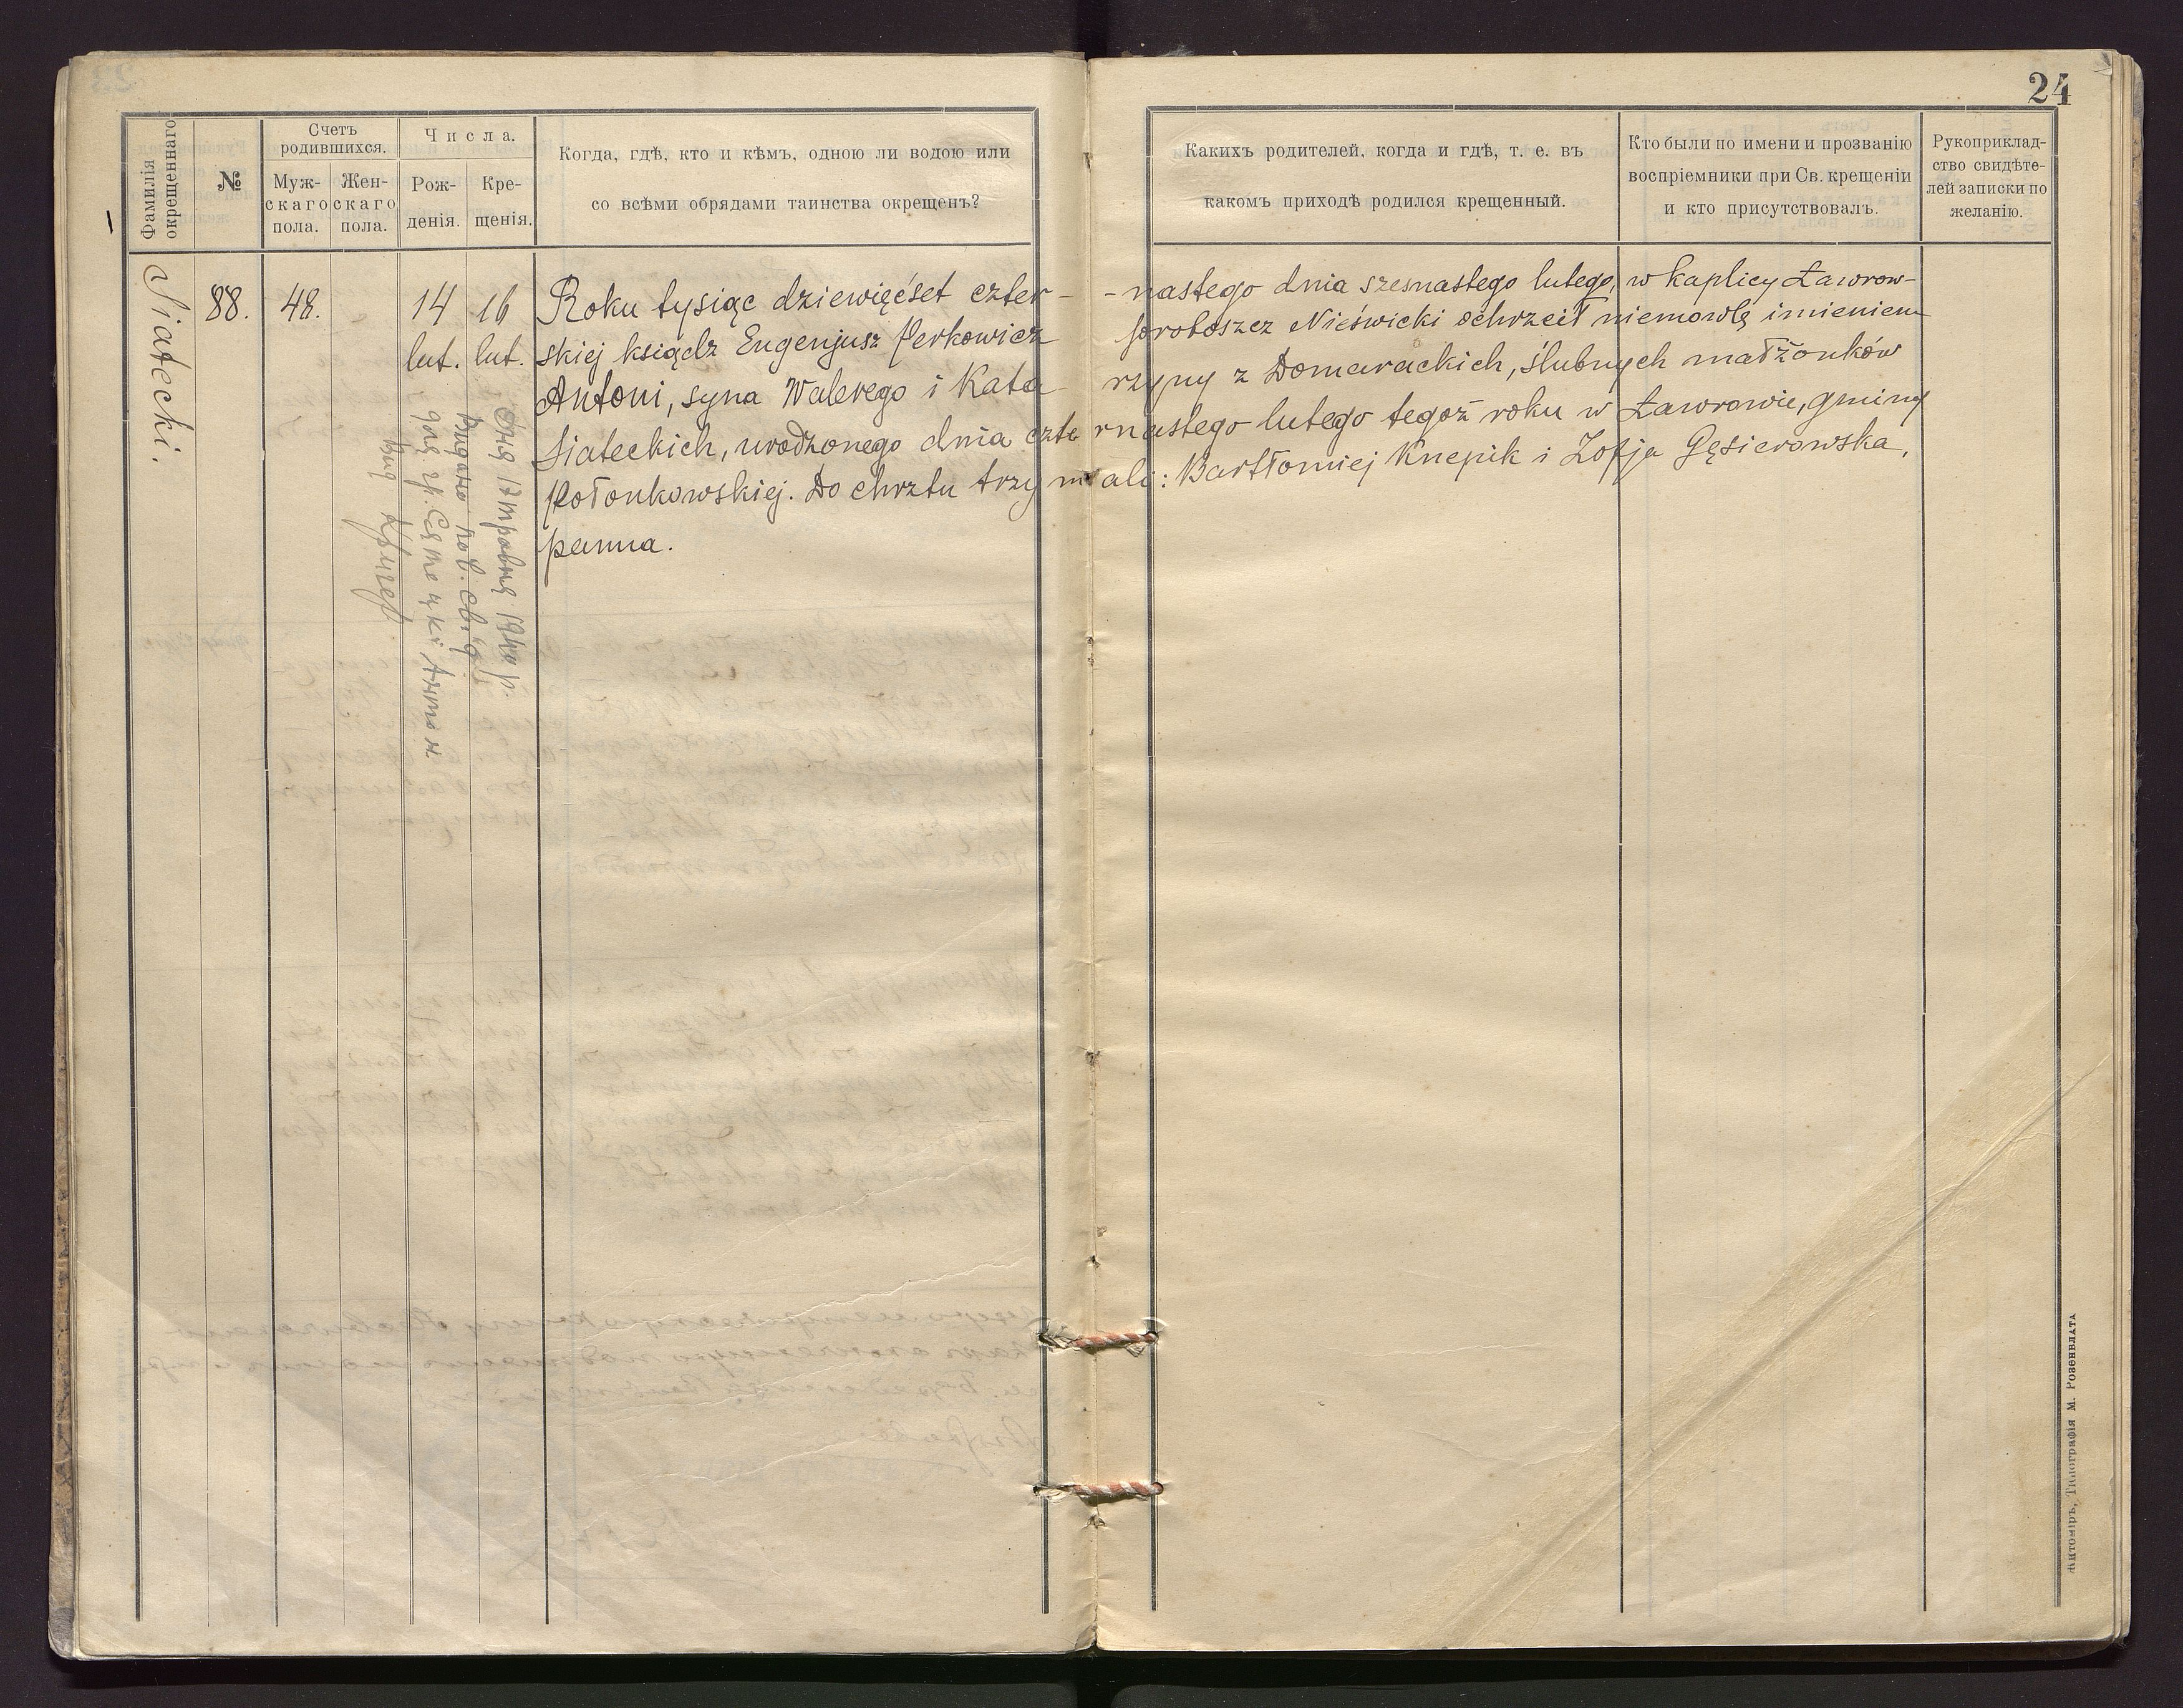 24
Фамилія окрещеннаго
№
Счетъ родившихся.
Мужскаго пола.
Женскаго пола.
Числа.
Рожденія.
Крещенія.
Когда, гдѣ, кто и кѣмъ, одною ли водою или
со всѣми обрядами таинства окрещенъ?
Какихъ родителей, когда и гдѣ, т. е. въ
какомъ приходѣ родился крещенный.
Кто были по имени и прозванію
воспріемники при Св. крещеніи
и кто присутствовалъ.
Рукоприклад-
ство свидѣте-
лей записки по
желанію.
Siatecki.
88.
48.
14 lut.
16 lut.
Roku tysiąc dziewięćset czter- -nastego dnia szesnastego lutego, w kaplicy Ławrow-
skiej ksiądz Eugenjusz Perkowicz proboszcz Nieświcki ochrzcił niemowlę imieniem
Antoni, syna Walerego i Kata- rzyny z Domarackich, ślubnych małżonków
Siateckich, urodzonego dnia czte rnastego lutego tegoż roku w Ławrowie, gminy
Połonkowskiej. Do chrztu trzymali: Bartłomiej Knepik i Zofja Gęsierowska,
panna.
Дня 17 травня 1940 р.
Видано пов. свід
для гр. Сятецкі Антон
Житоміръ, Типографія М. Розенблата